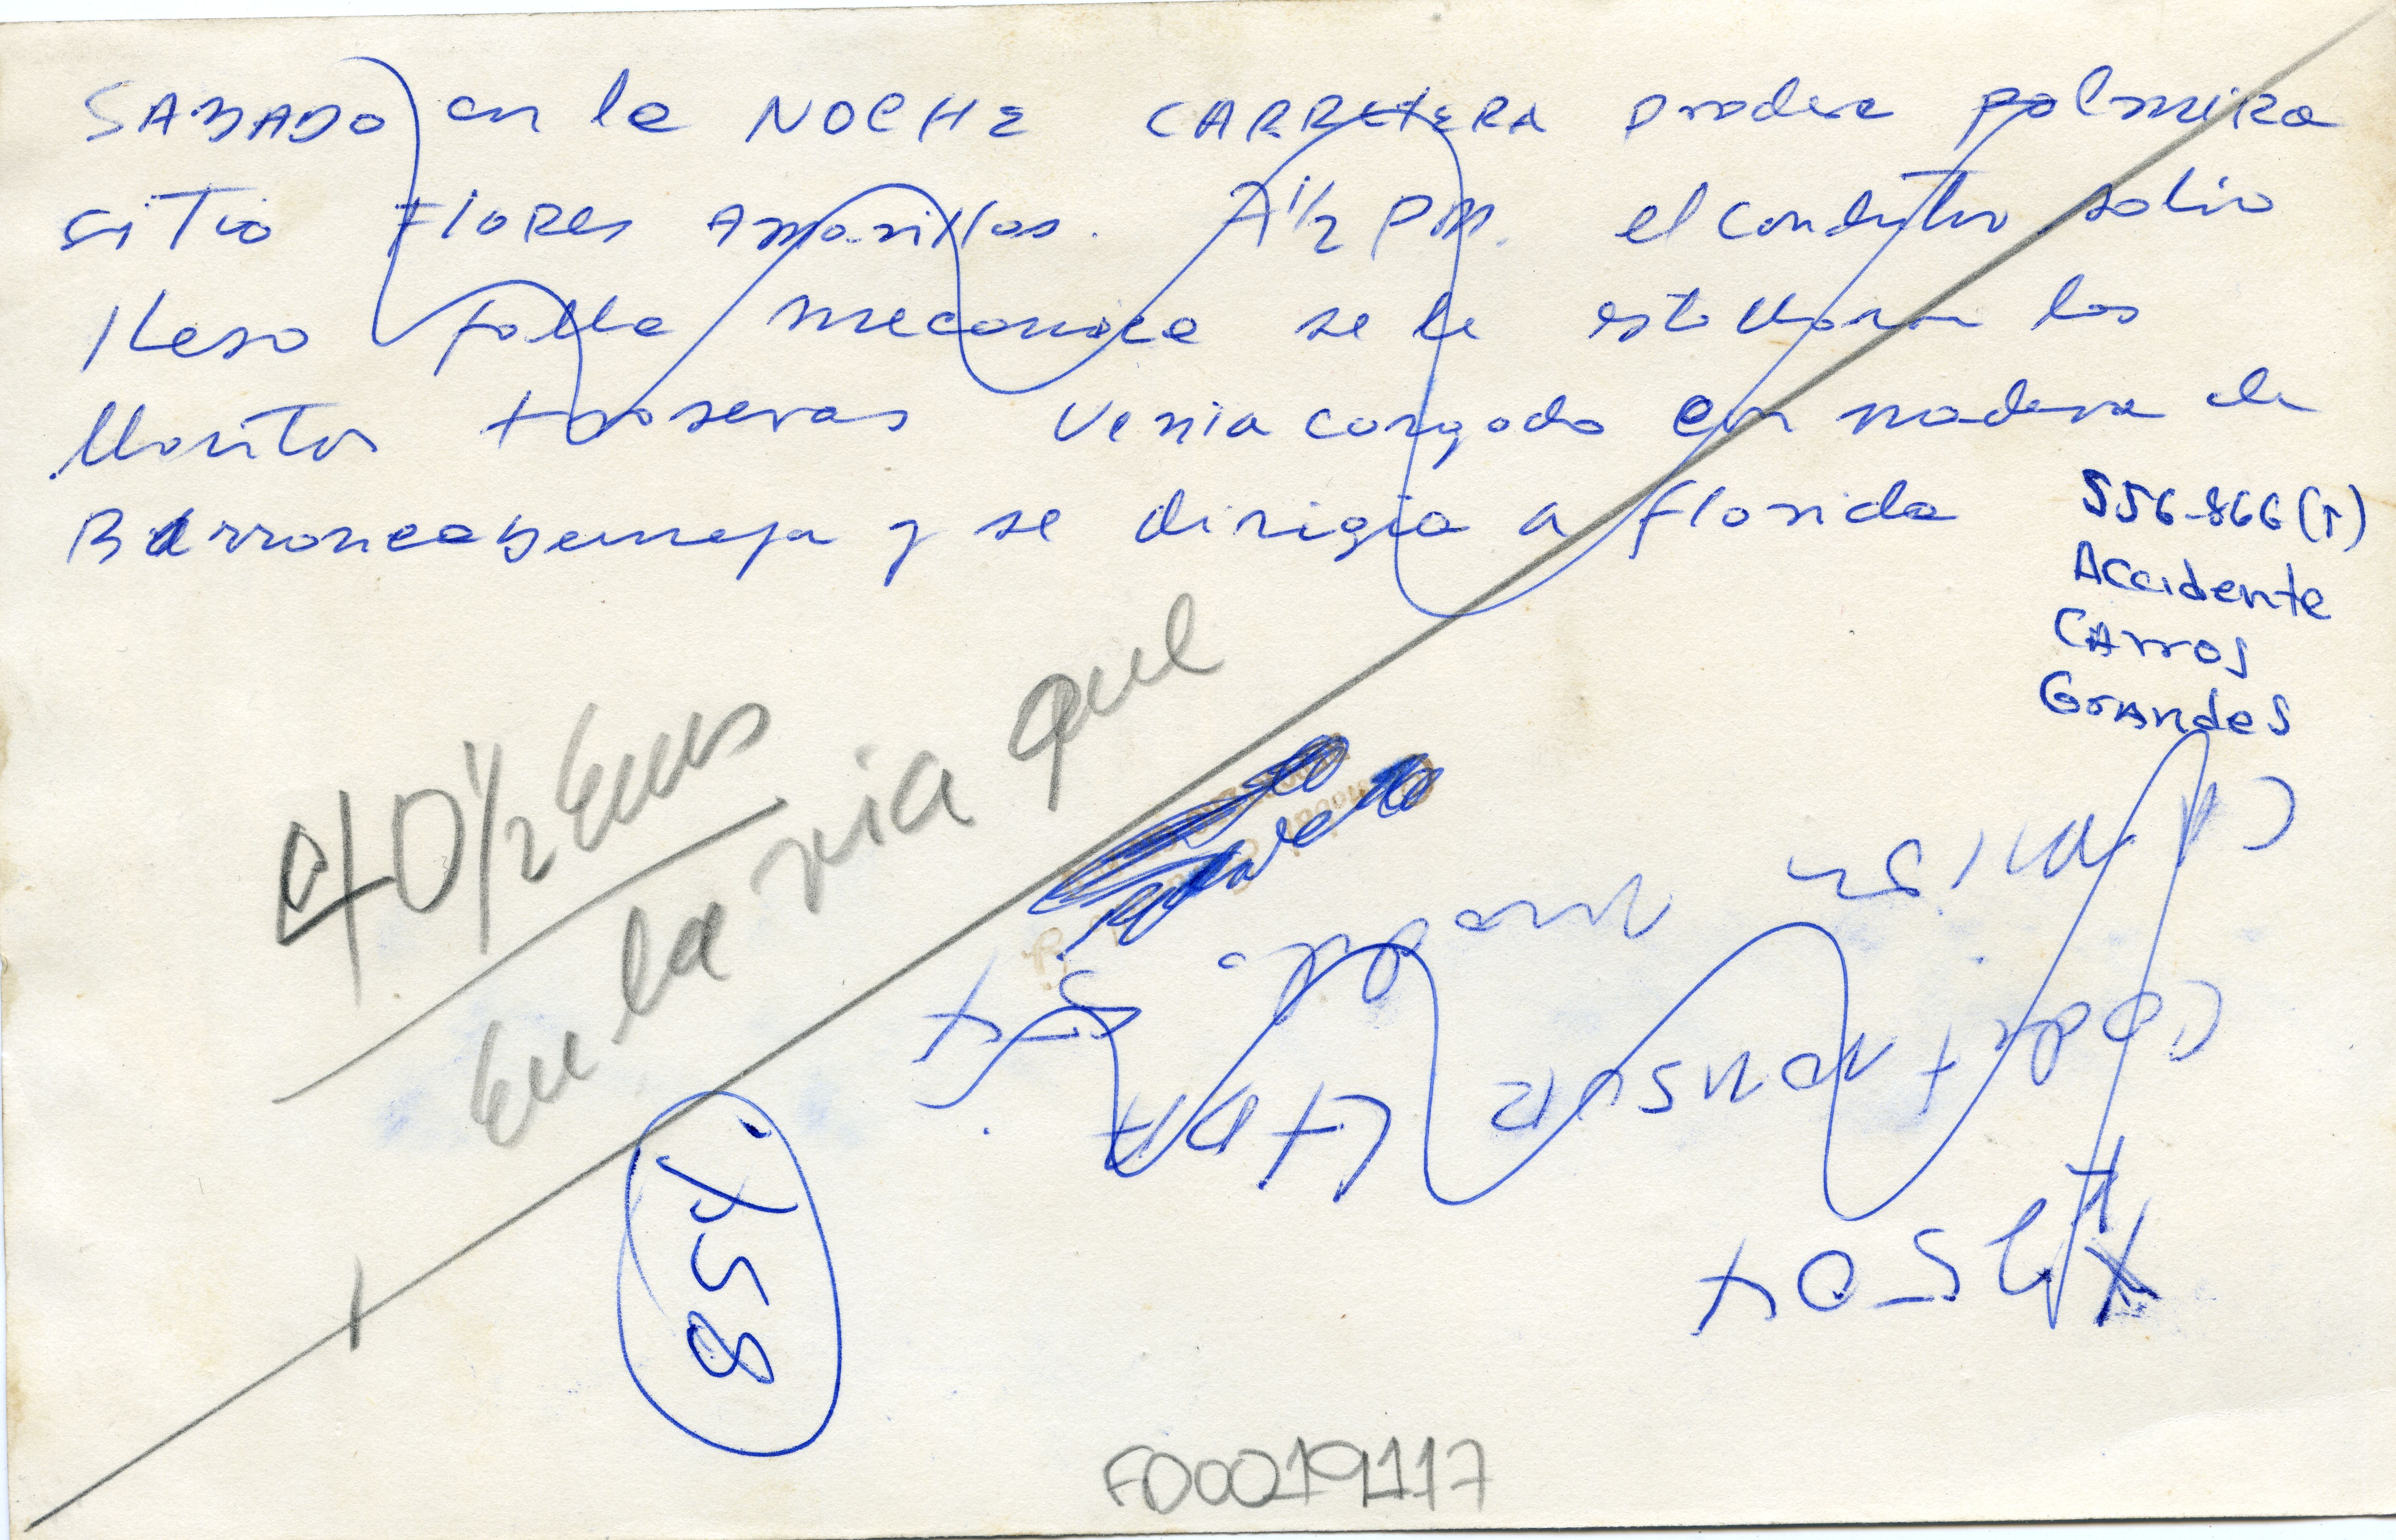 SABADO en la NOCHE CARRETERA Pradera palmira
sitio FloRes Amarillas. 7 1/2 PM. el conductor salio
Ileso falla mecanica se le estallaron las
llantas traseras venia cargado con madera de
Barrancabermeja y se dirigia a florida
556-866(T)
Accidente
Carros
Grandes
40 1/2 Ems
En la via que
Camion
Coopetransur LTDA
X 58
FD0019117